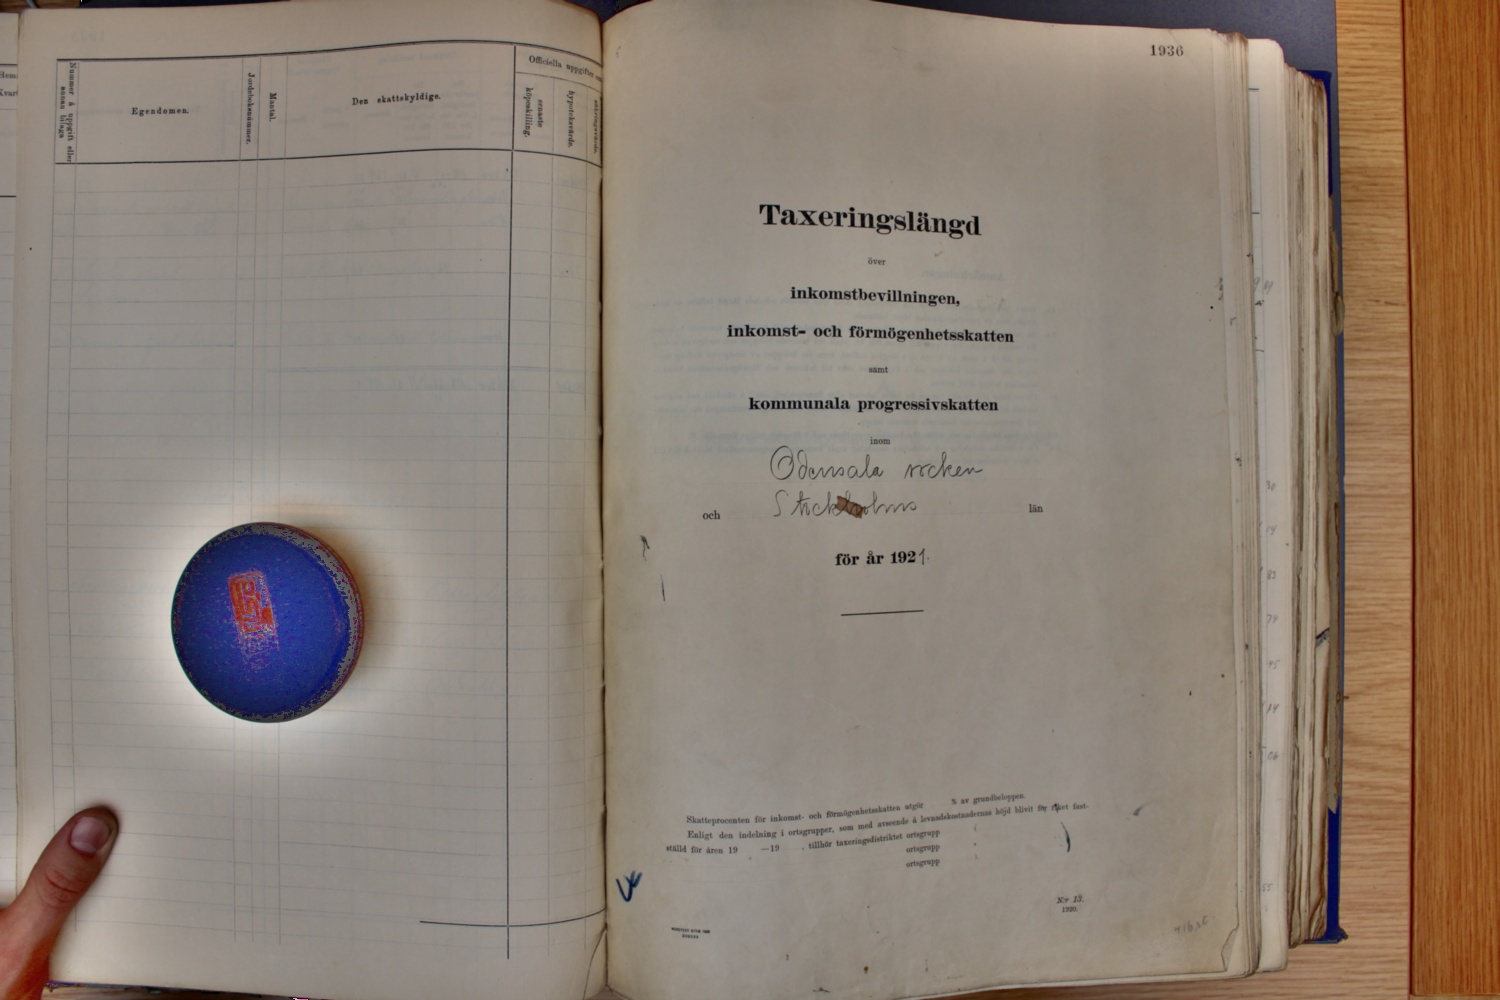 Nummer å uppgift eller annan bilaga
Egendomen.
Jordeboksnummer.
Mantal.
Den skattskyldige.
Officiella uppgifter
senaste köpeskilling.
hypoteksvärde.
1936
Taxeringslängd
över
inkomstbevillningen,
inkomst- och förmögenhetsskatten
samt
kommunala progressivskatten
inom
Odensala socken
och Stockholms län
för år 1921.
Skatteprocenten för inkomst- och förmögenhetsskatten utgör % av grundbeloppen.
Enligt den indelning i ortsgrupper, som med avseende å levnadskostnadernas höjd blivit för riket fast-
ställd för åren 19 —19 , tillhör taxeringsdistriktet ortsgrupp
ortsgrupp
ortsgrupp
N:r 13.
1920.